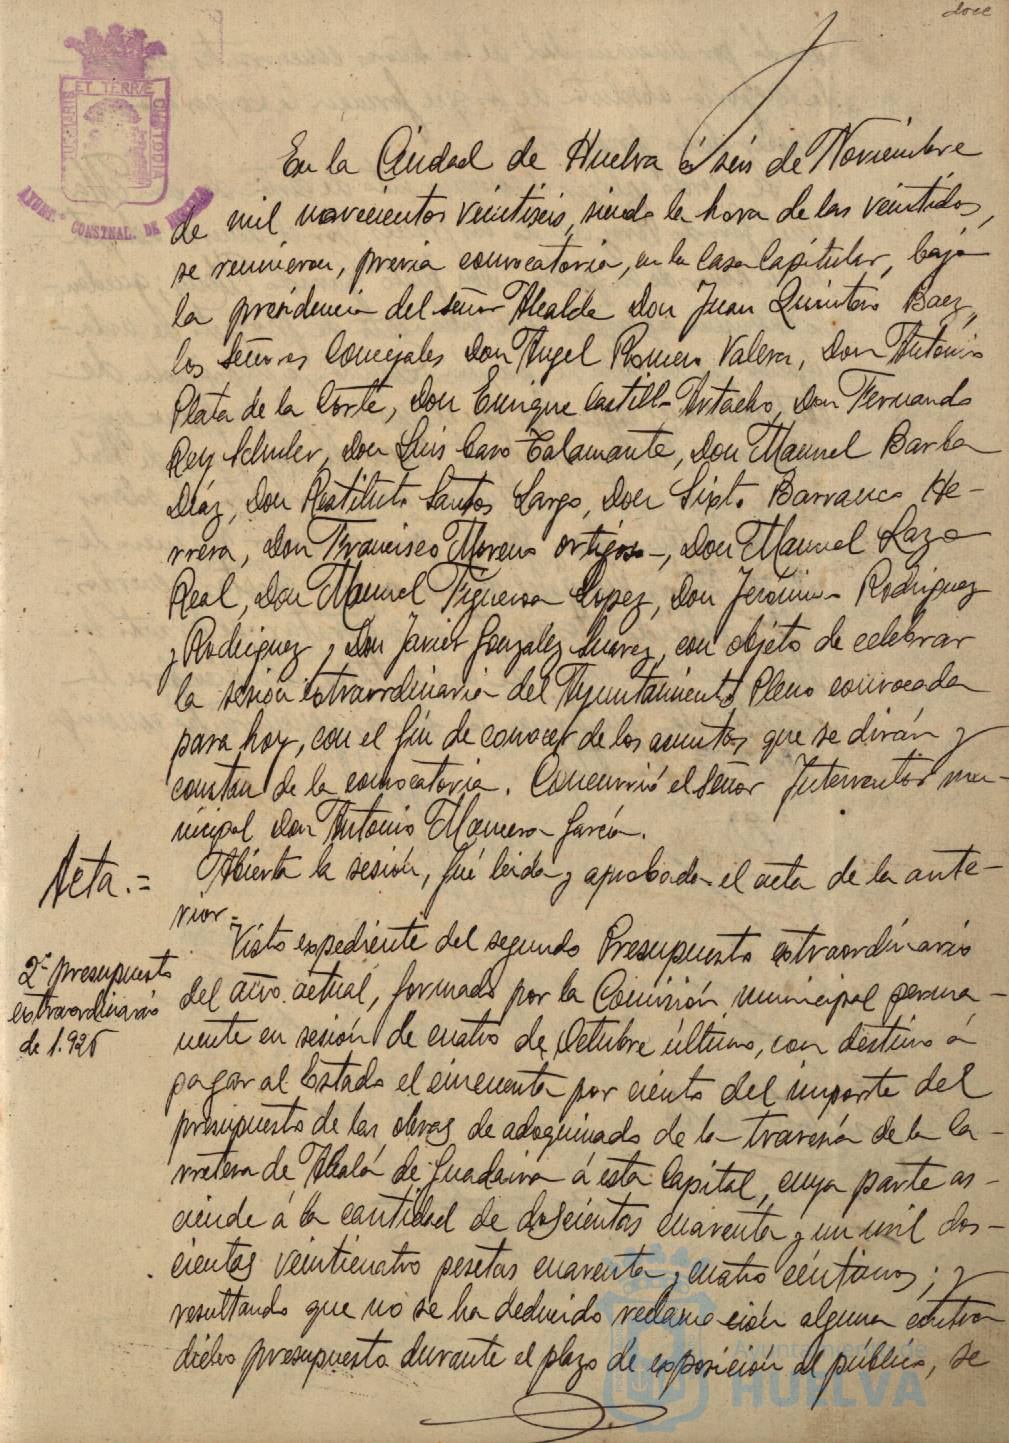 doce
PORTUS MARIS ET TERRÆ CUSTODIA
AYUNT.º CONSTNAL. DE HUELVA
En la Ciudad de Huelva á seis de Noviembre
de mil novecientos veintiseis, siendo la hora de las veintidos,
se reunieron, previa convocatoria, en la Casa Capitular, bajo
la presidencia del señor Alcalde Don Juan Quintero Baez,
los Señores Concejales Don Angel Romero Valera, Don Antonio
Plata de la Corte, Don Enrique Castillo Artacho, Don Fernando
Rey Schuler, Don Luis Caro Talamante, Don Manuel Barba
Diaz, Don Restituto Santos Largo, Don Sixto Barranco He-
rrera, Don Francisco Moreno Ortigosa, Don Manuel Lazo
Real, Don Manuel Figueroa Lopez, Don Jerónimo Rodriguez
y Rodriguez y Don Javier Gonzalez Suarez, con objeto de celebrar
la sesión extraordinaria del Ayuntamiento Pleno convocada
para hoy, con el fin de conocer de los asuntos que se dirán y
constan de la convocatoria. Concurrió el Señor Interventor mu-
nicipal Don Antonio Marcera García.
Acta.=
Abierta la sesión, fué leida y aprobada el acta de la ante-
rior.=
2º presupuesto
extraordinario
de 1.926
Visto expediente del segundo Presupuesto extraordinario
del año actual, formado por la Comisión municipal perma-
nente en sesión de cuatro de Octubre último, con destino á
pagar al Estado el cincuenta por ciento del importe del
presupuesto de las obras de adoquinado de la travesía de la Ca-
rretera de Alcalá de Guadaira á esta Capital, cuya parte as-
ciende á la cantidad de doscientas cuarenta y un mil dos-
cientas veinticuatro pesetas cuarenta y cuatro céntimos; y
resultando que no se ha deducido reclamación alguna contra
dicho presupuesto durante el plazo de exposición al público, se
Ayuntamiento de
HUELVA